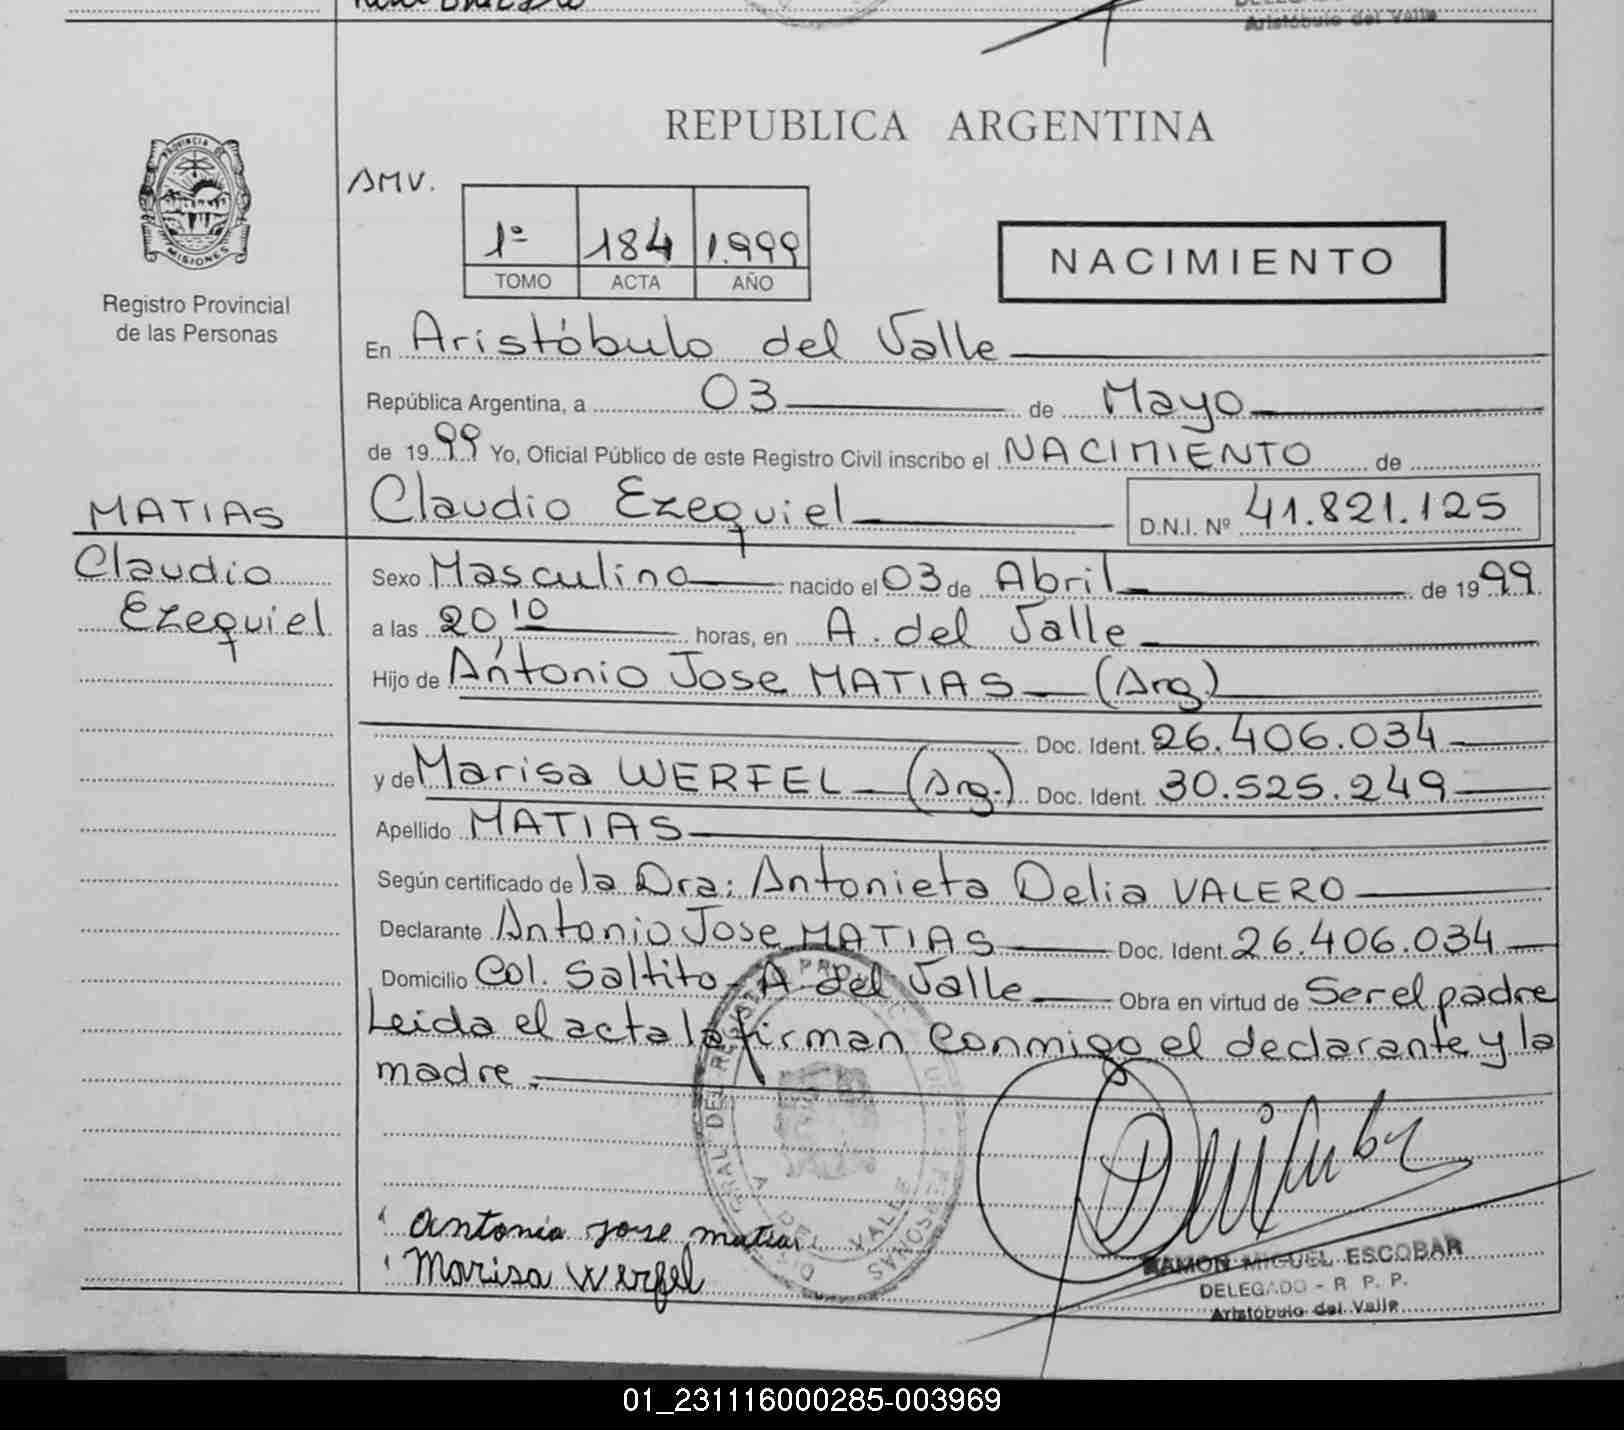 Aristóbulo del Valle
REPUBLICA ARGENTINA
PROVINCIA DE
MISIONES
Registro Provincial
de las Personas
AMV.
1º 184 1.999
TOMO ACTA AÑO
NACIMIENTO
En Aristóbulo del Valle
República Argentina, a 03 de Mayo
de 1999 Yo, Oficial Público de este Registro Civil inscribo el NACIMIENTO de
MATIAS
Claudio Ezequiel
Claudio Ezequiel D.N.I. Nº 41.821.125
Sexo Masculino nacido el 03 de Abril de 1999.
a las 20,10 horas, en A. del Valle
Hijo de Antonio Jose MATIAS (Arg.)
Doc. Ident. 26.406.034
y de Marisa WERFEL (Arg.) Doc. Ident. 30.525.249
Apellido MATIAS
Según certificado de la Dra: Antonieta Delia VALERO
Declarante Antonio Jose MATIAS Doc. Ident. 26.406.034
Domicilio Col. Saltito - A. del Valle Obra en virtud de Ser el padre
Leida el acta la firman conmigo el declarante y la
madre.
Antonio Jose matias
Marisa Werfel
RAMON MIGUEL ESCOBAR
DELEGADO - R. P. P.
Aristóbulo del Valle
01_231116000285-003969